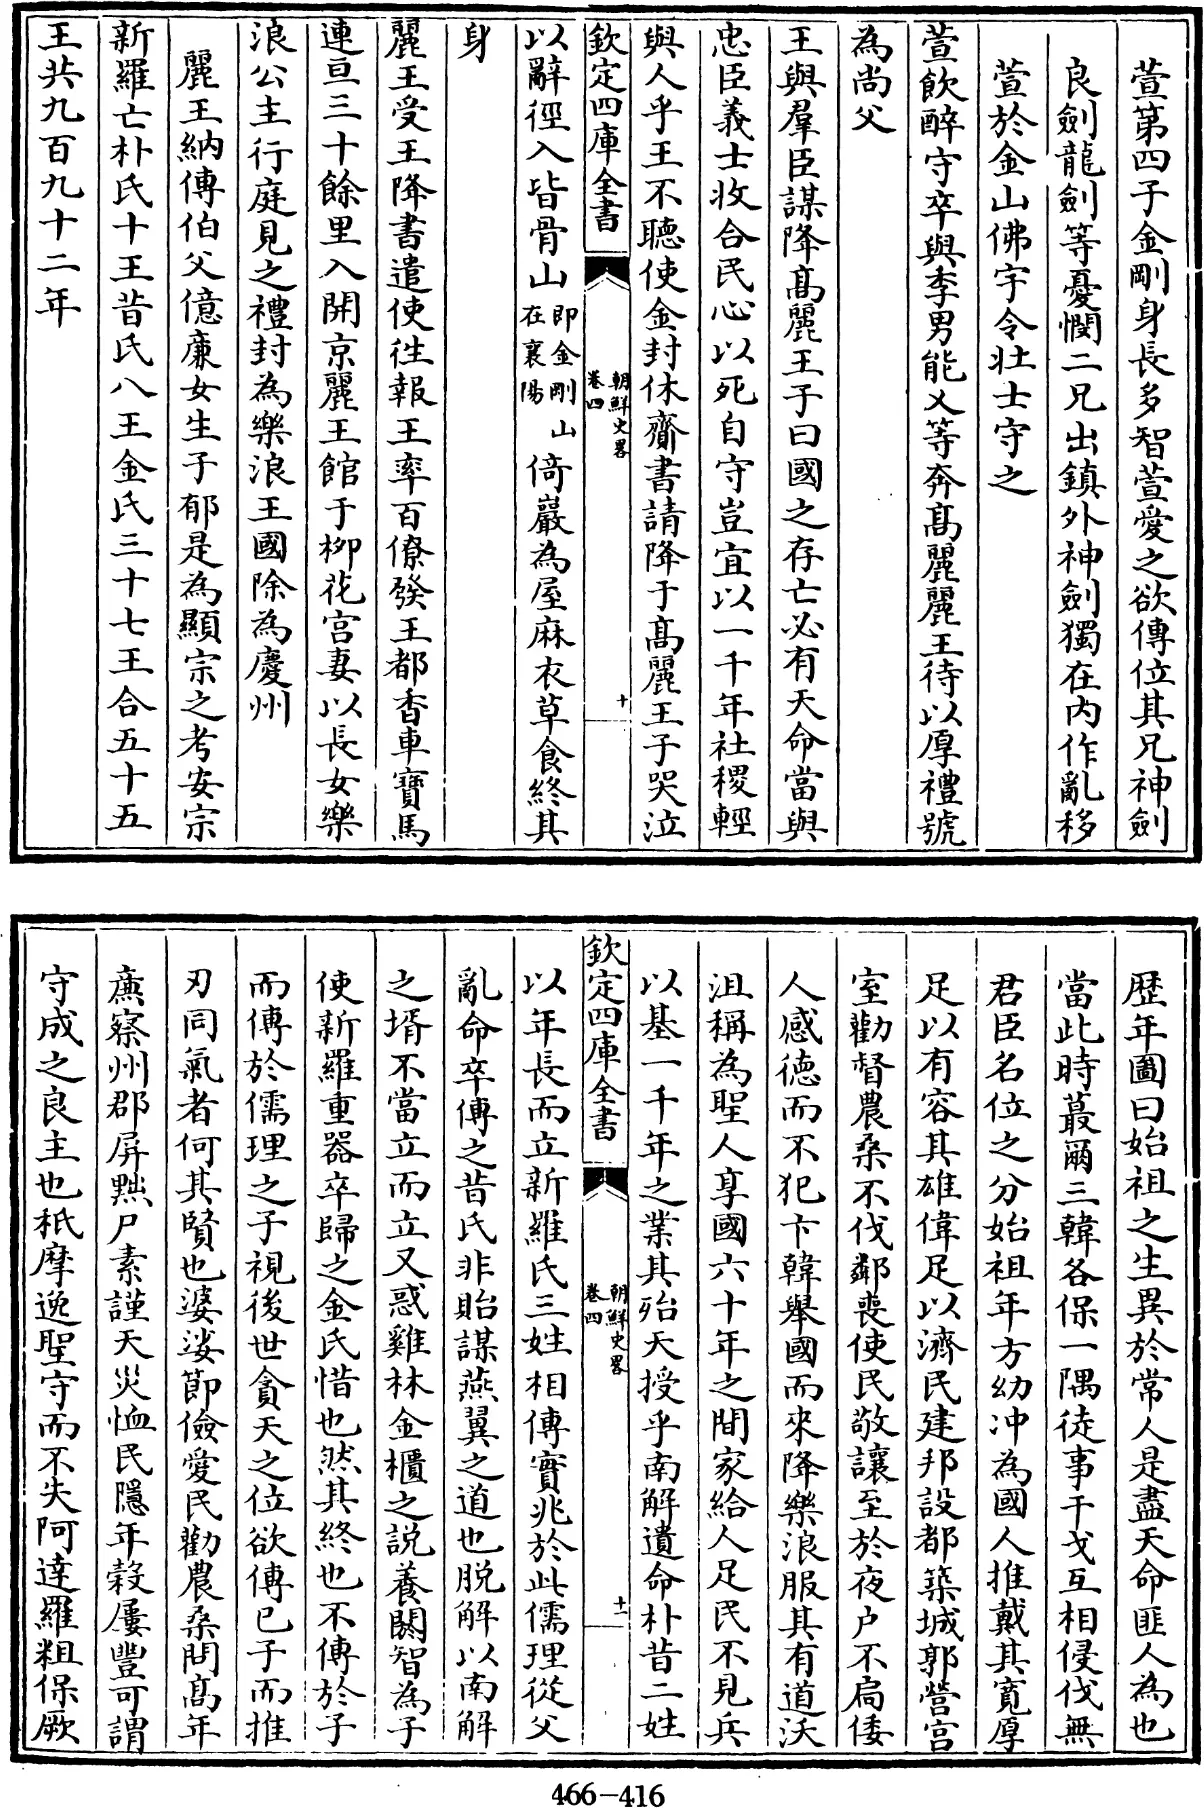 萱第四子金剛身長多智萱愛之欲傳位其兄神劍
良劍龍劍等憂憫二兄出鎮外神劍獨在内作亂移
萱於金山佛宇令壮士守之
萱飲醉守卒與季男能乂等奔髙麗麗王待以厚禮號
為尚父
王與羣臣謀降髙麗王子曰國之存亡必有天命當與
忠臣義士收合民心以死自守豈宜以一千年社稷輕
與人乎王不聴使金封休齎書請降于髙麗王子哭泣
欽定四庫全書
朝鮮史畧
卷四
十
以辭徑入皆骨山即金剛山在襄陽倚巖為屋麻衣草食終其
身
麗王受王降書遣使徃報王率百僚發王都香車寶馬
連亘三十餘里入開京麗王館于柳花宫妻以長女樂
浪公主行庭見之禮封為樂浪王國除為慶州
麗王納傳伯父億廉女生子郁是為顯宗之考安宗
新羅亡朴氏十王昔氏八王金氏三十七王合五十五
王共九百九十二年
歴年圖曰始祖之生異於常人是盡天命匪人為也
當此時蕞爾三韓各保一隅徒事干戈互相侵伐無
君臣名位之分始祖年方幼冲為國人推戴其寛厚
足以有容其雄偉足以濟民建邦設都築城郭營宫
室勸督農桑不伐鄰喪使民敬讓至於夜户不扃倭
人感徳而不犯卞韓舉國而來降樂浪服其有道沃
沮稱為聖人享國六十年之間家給人足民不見兵
以基一千年之業其殆天授乎南解遺命朴昔二姓
欽定四庫全書
朝鮮史畧
卷四
十一
以年長而立新羅氏三姓相傳實兆於此儒理從父
亂命卒傳之昔氏非貽謀燕翼之道也脱解以南解
之壻不當立而立又惑雞林金櫃之説養閼智為子
使新羅重器卒歸之金氏惜也然其終也不傳於子
而傳於儒理之子視後世貪天之位欲傳已子而推
刃同氣者何其賢也婆娑節儉愛民勸農桑問髙年
廉察州郡屏黜尸素謹天災恤民隱年穀屢豐可謂
守成之良主也秖摩逸聖守而不失阿達羅粗保厥
466-416